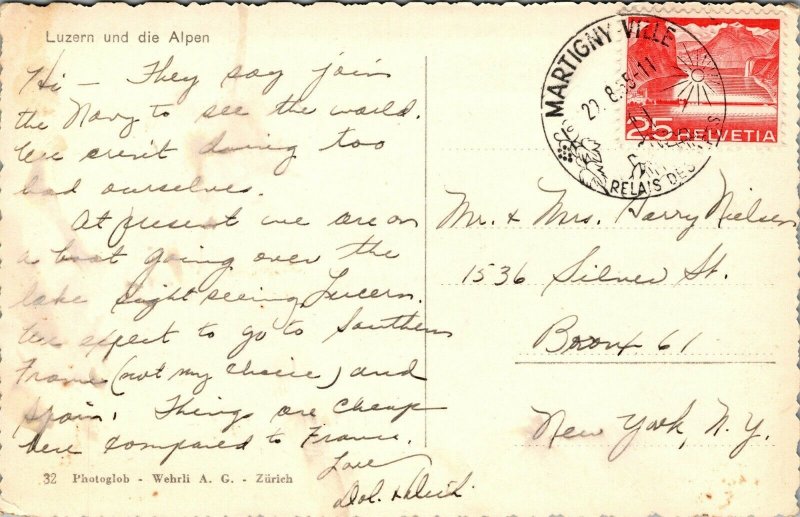 Luzern und die Alpen
Hi - They say join
the Navy to see the world.
We aren't doing too
bad ourselves.
At present we are on
a boat going over the
lake sight seeing Lucern.
We expect to go to Southern
France (not my choice) and
Spain. Things are cheap
here compared to France.
Love
Dol. &
32 Photoglob - Wehrli A. G. - Zürich
MARTIGNY-VILLE
RELAIS DES
25 HELVETIA
Mr. & Mrs. Harry Nielsen
1536 Silver St.
Bronx 61
New York, N.Y.